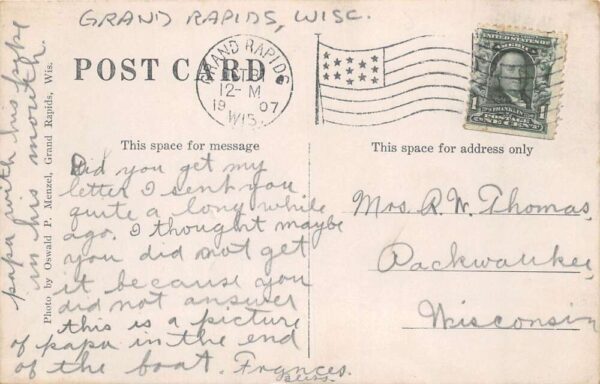 GRAND RAPIDS, WISC.
POST CARD
GRAND RAPIDS
12-M
19 07
WIS.
UNITED STATES OF
AMERICA
1 FRANKLIN 1
POSTAGE
ONE CENT
This space for message
This space for address only
Photo by Oswald P. Menzel, Grand Rapids, Wis.
Did you get my
letter I sent you
quite a long while
ago. I thought maybe
you did not get
it because you
did not answer
this is a picture
of papa in the end
of the boat. Frances
papa with his pipe
in his mouth.
Mrs. R. W. Thomas,
Packwaukee,
Wisconsin